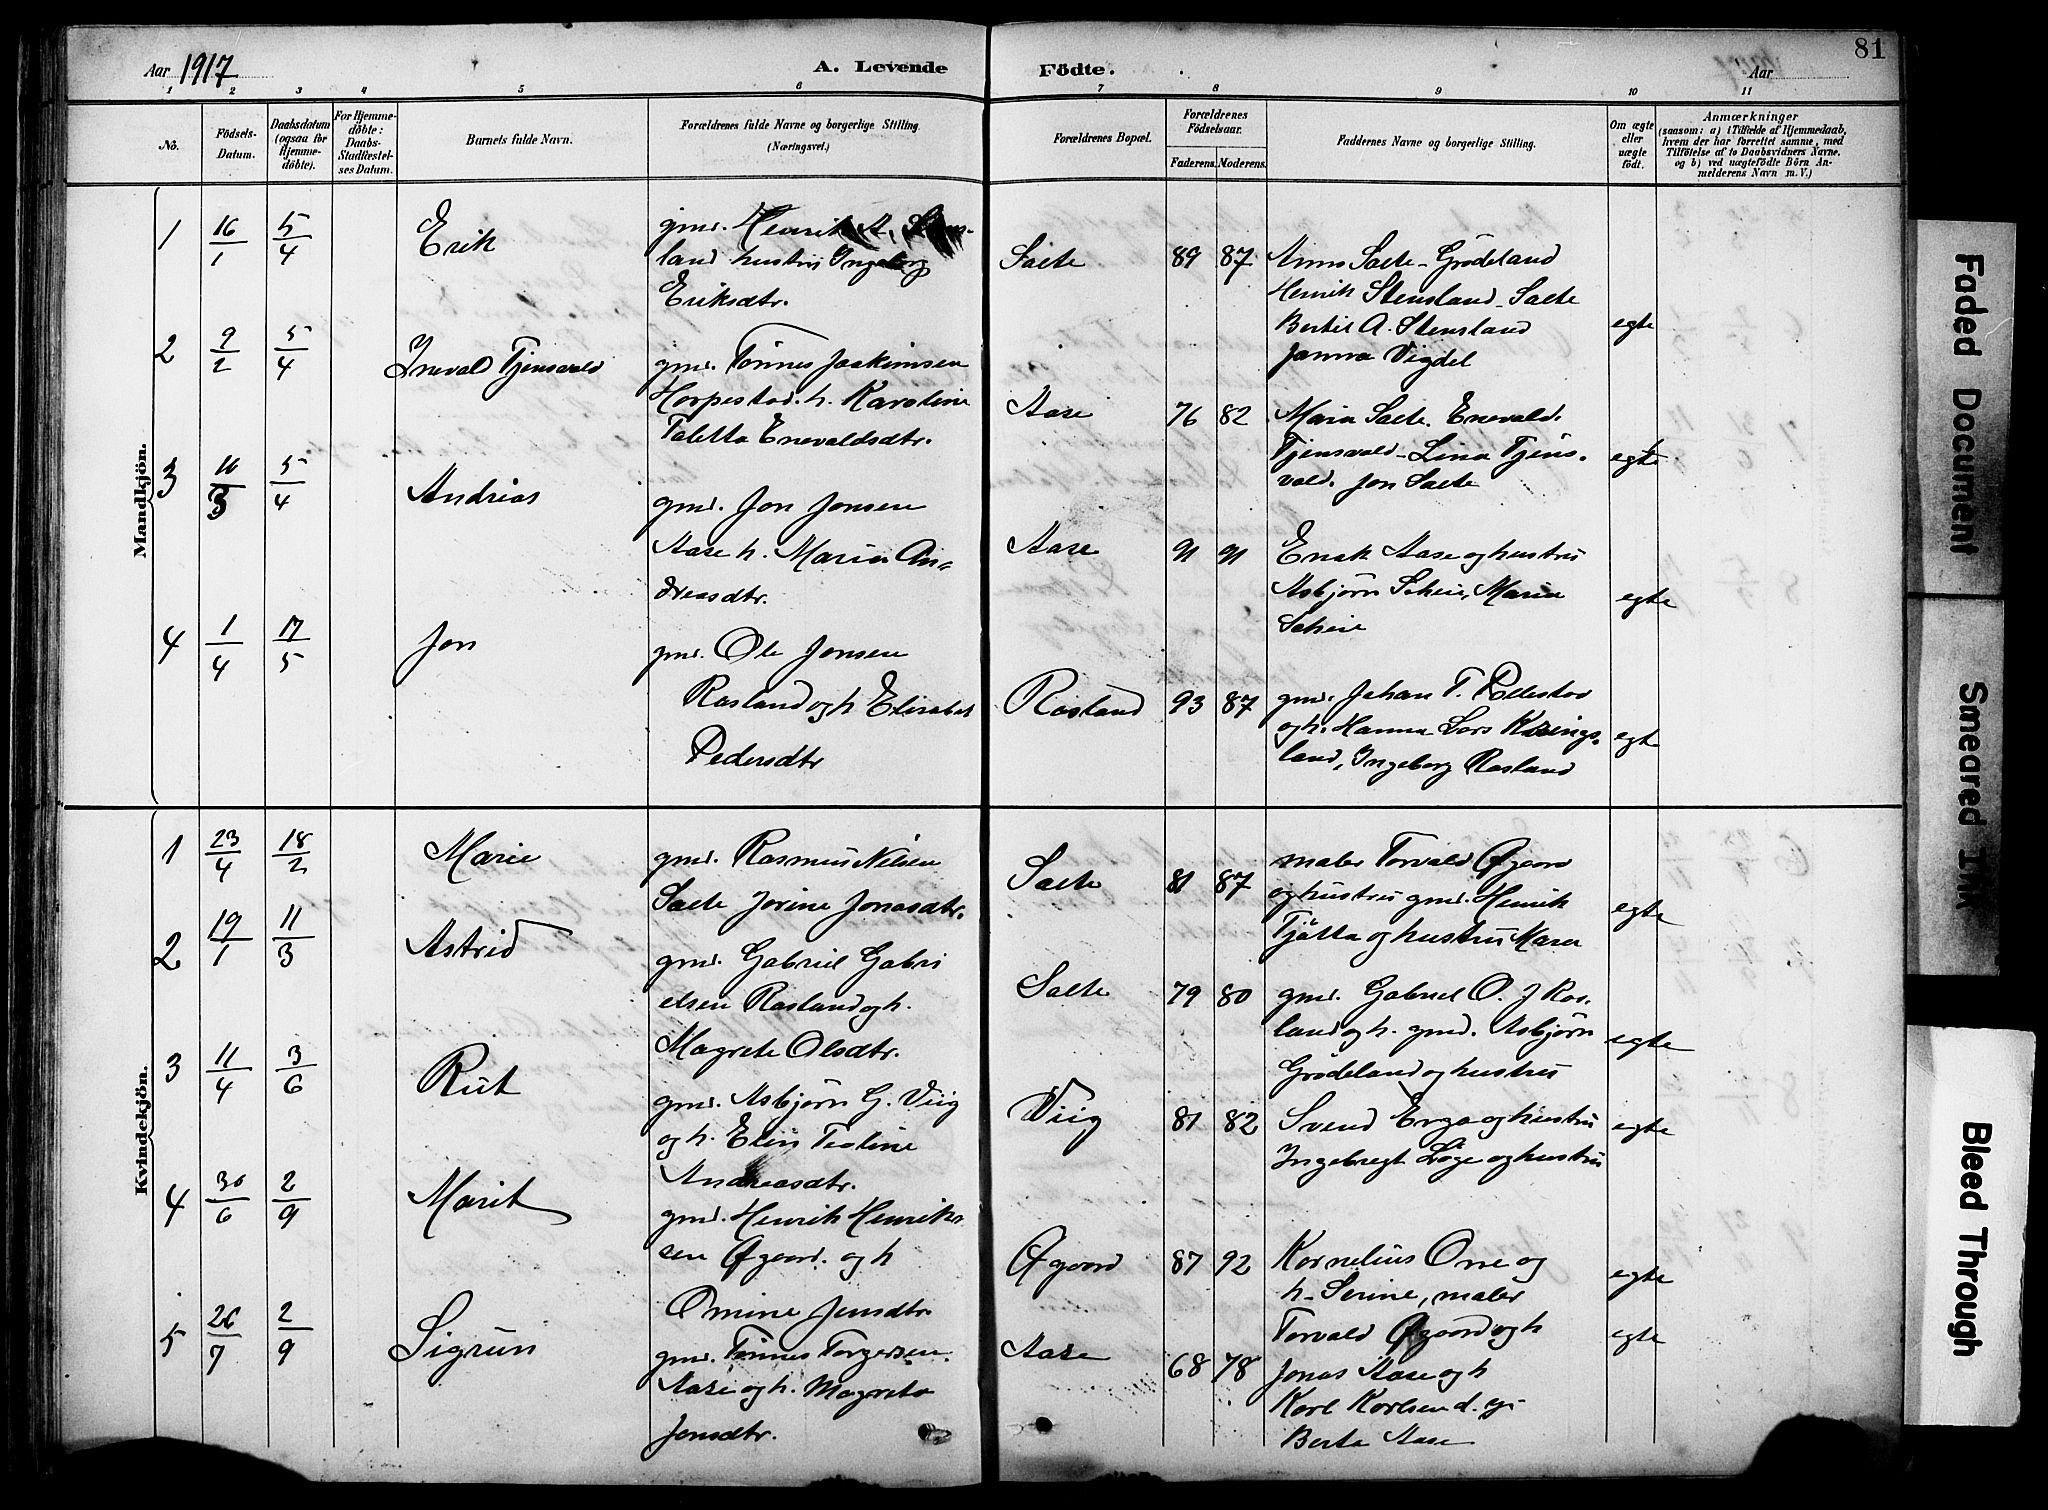 Aar 1917
A. Levende
Födte.
Aar
81
1 2 3 4 5 6 7 8 9 10 11
No.
Födsels-Datum.
Daabsdatum (ogsaa for Hjemmedöbte).
For Hjemmedöbte: Daabs-Stadfæstelses Datum.
Barnets fulde Navn.
Forældrenes fulde Navne og borgerlige Stilling. (Næringsvei.)
Forældrenes Bopæl.
Forældrenes Födselsaar.
Faderens. Moderens.
Faddernes Navne og borgerlige Stilling.
Om ægte eller uægte födt.
Anmærkninger (saasom: a) i Tilfælde af Hjemmedaab, hvem der har forrettet samme, med Tilföielse af to Daabsvidners Navne, og b) ved uægtefödte Börn Anmelderens Navn m. V.)
Mandkjön.
1 16/1 5/4 Erik
gmd. Henrik A. Stens-
land hustru Ingeborg
Eriksdtr.
Salte 89 87
Anna Salte - Grødeland
Henrik Stensland - Salte
Bertil A. Stensland
Janna Vigdel
egte
2 9/2 5/4 Ineval Tjensvold
gmd. Tönnes Joakimsen
Horpestad. h. Karoline
Taletta Enevaldsdtr.
Aase 76 82
Maria Salte. Enevald.
Tjensvold - Lina Tjens-
vold. Jon Salte
egte
3 16/3 5/4 Andrias
gmd. Jon Jonsen
Aase h. Maria An-
dreasdtr.
Aase 91 91
Enok Aase og hustru
Asbjørn Scheie, Maria
Scheie
egte
4 1/4 17/5 Jon
gmd. Ole Jonsen
Rosland og h Elisabet
Pedersdtr
Rosland 93 87
gmd. Johan T. Pollestad
og h. Hanna Lars Krings-
land, Ingeborg Rosland
egte
Kvindekjön.
1 23/4 18/2 Marie
gmd. Rasmus Nilsen
Salte Jorine Jonasdtr.
Salte 81 87
maler Torvald Øgaard
og hustru gmd. Henrik
Tjøtta og hustru Maria
egte
2 19/1 11/3 Astrid
gmd. Gabriel Gabri
elsen Rosland og h.
Magrete Olsdtr.
Salte 79 80
gmd. Gabriel O. J Ros-
land og h. gmd. Asbjørn
Grødeland og hustru
egte
3 11/4 3/6 Rut
gmd. Asbjørn G. Viig
og h. Elin Teoline
Andreasdtr.
Viig 81 82
Svend Erga og hustru
Ingebregt Løge og hustru
egte
4 30/6 2/9 Marit
gmd. Henrik Henrik-
sen Øgaard. og h
Omine Jensdtr.
Øgaard 87 92
Kornelius Orre og
h. Serine, maler
Torvald Øgaard og h
egte
5 26/7 2/9 Sigrun
gmd. Tönnes Torgersen.
Aase og h. Magreta
Jonsdtr.
Aase 68 78
Jonas Aase og h
Karl Karlsen d. y.
Berta Aase
egte
Faded Document
Smeared Ink
Bleed Through